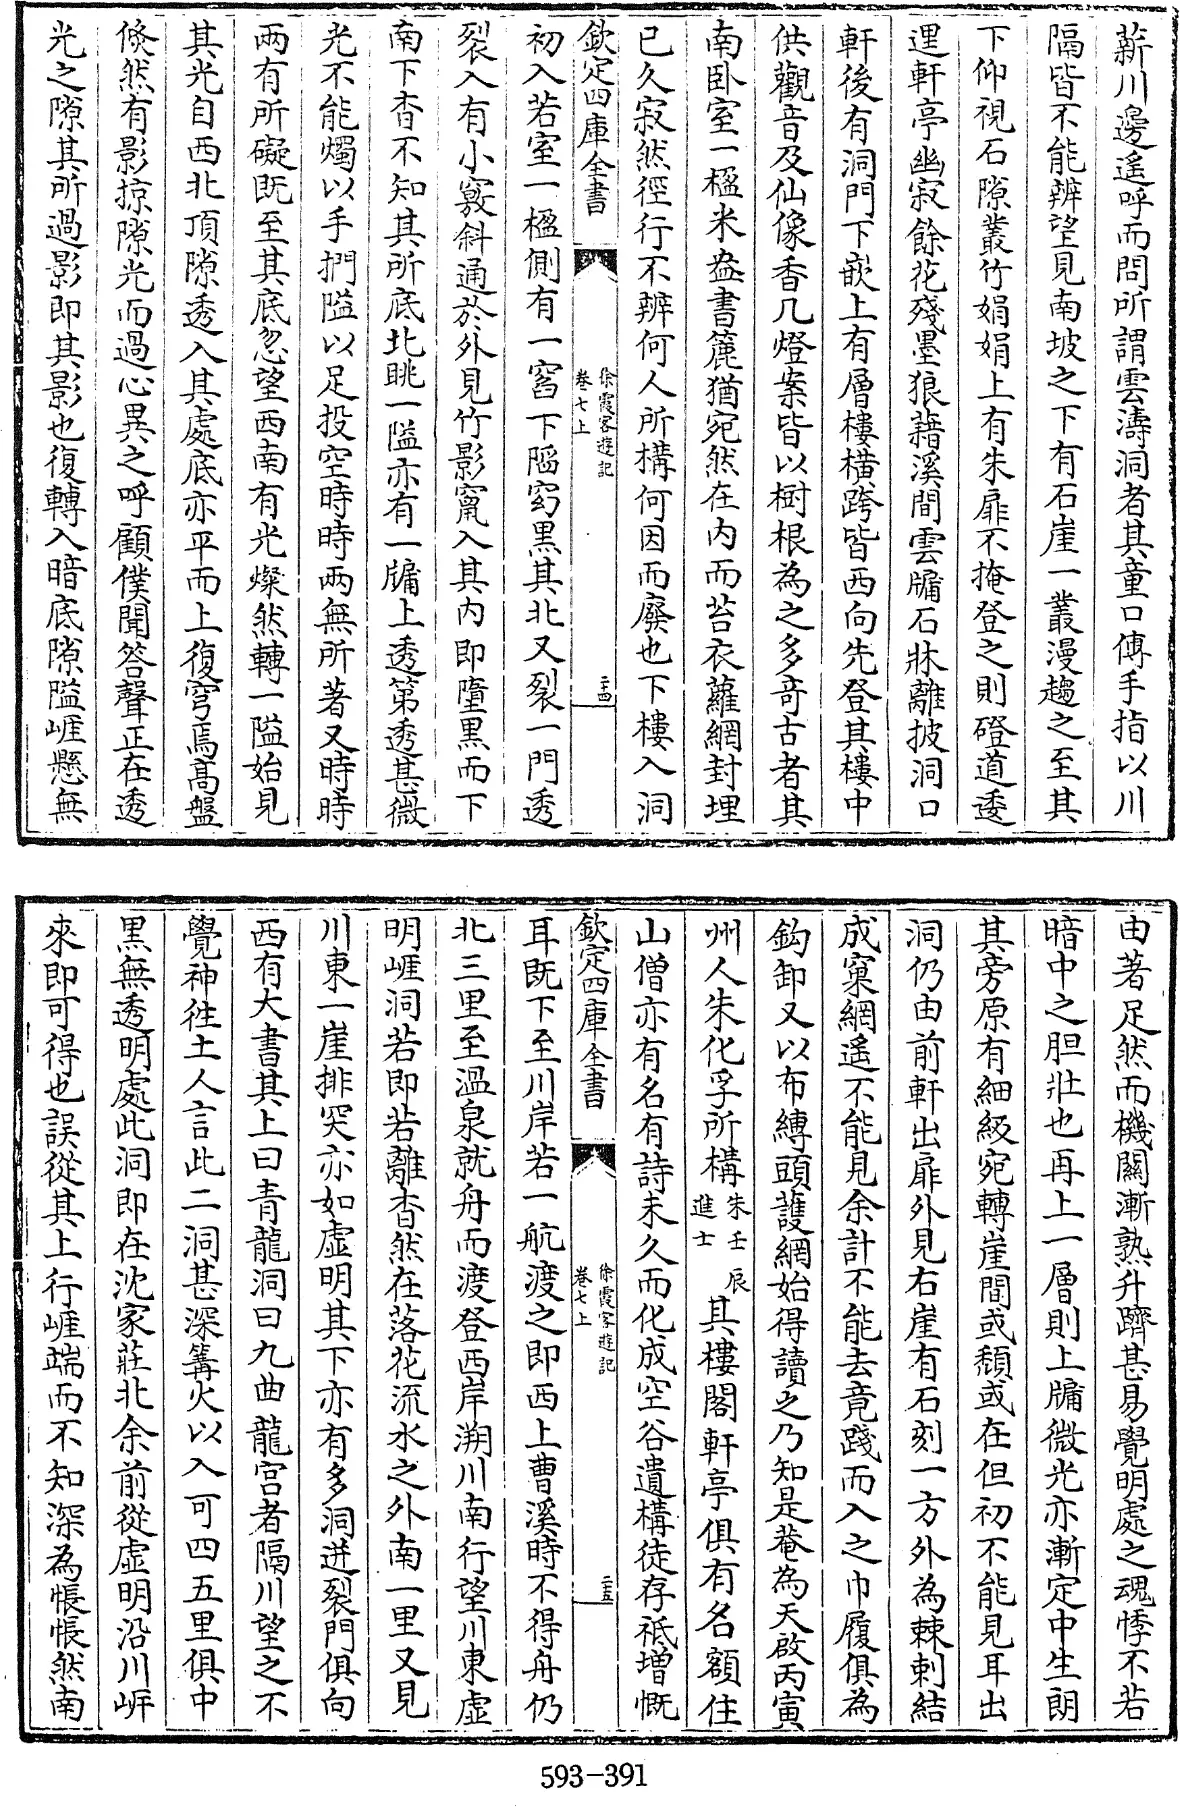 薪川邊遙呼而問所謂雲濤洞者其童口傳手指以川
隔皆不能辨望見南坡之下有石崖一叢漫趨之至其
下仰視石隙叢竹娟娟上有朱扉不掩登之則磴道逶
迤軒亭幽寂餘花殘墨狼藉溪間雲牖石牀離披洞口
軒後有洞門下嵌上有層樓横跨皆西向先登其樓中
供觀音及仙像香几燈案皆以樹根為之多奇古者其
南卧室一楹米盎書簏猶宛然在内而苔衣蘿網封埋
已久寂然徑行不辨何人所構何因而廢也下樓入洞
欽定四庫全書
徐霞客遊記
卷七上
二十四
初入若室一楹側有一窞下陷窈黑其北又裂一門透
裂入有小竅斜通於外見竹影窺入其内即墮黑而下
南下杳不知其所底北眺一隘亦有一牖上透第透甚微
光不能燭以手捫隘以足投空時時兩無所著又時時
兩有所礙既至其底忽望西南有光燦然轉一隘始見
其光自西北頂隙透入其處底亦平而上復穹焉高盤
倐然有影掠隙光而過心異之呼顧僕聞答聲正在透
光之隙其所過影即其影也復轉入暗底隙隘崕懸無
由著足然而機關漸熟升躋甚易覺明處之魂悸不若
暗中之胆壯也再上一層則上牖微光亦漸定中生朗
其旁原有細級宛轉崖間或頽或在但初不能見耳出
洞仍由前軒出扉外見右崖有石刻一方外為棘刺結
成窠網遙不能見余計不能去竟踐而入之巾履俱為
鈎卸又以布縛頭護網始得讀之乃知是菴為天啟丙寅
州人朱化孚所構朱壬辰
進士其樓閣軒亭俱有名額住
山僧亦有名有詩未久而化成空谷遺構徒存祗増慨
欽定四庫全書
徐霞客遊記
卷七上
二十五
耳既下至川岸若一航渡之即西上曹溪時不得舟仍
北三里至溫泉就舟而渡登西岸溯川南行望川東虛
明崕洞若即若離杳然在落花流水之外南一里又見
川東一崖排突亦如虛明其下亦有多洞迸裂門俱向
西有大書其上曰青龍洞曰九曲龍宮者隔川望之不
覺神徃土人言此二洞甚深篝火以入可四五里俱中
黑無透明處此洞即在沈家莊北余前從虛明沿川岍
來即可得也誤從其上行崕端而不知深為悵悵然南
593-391